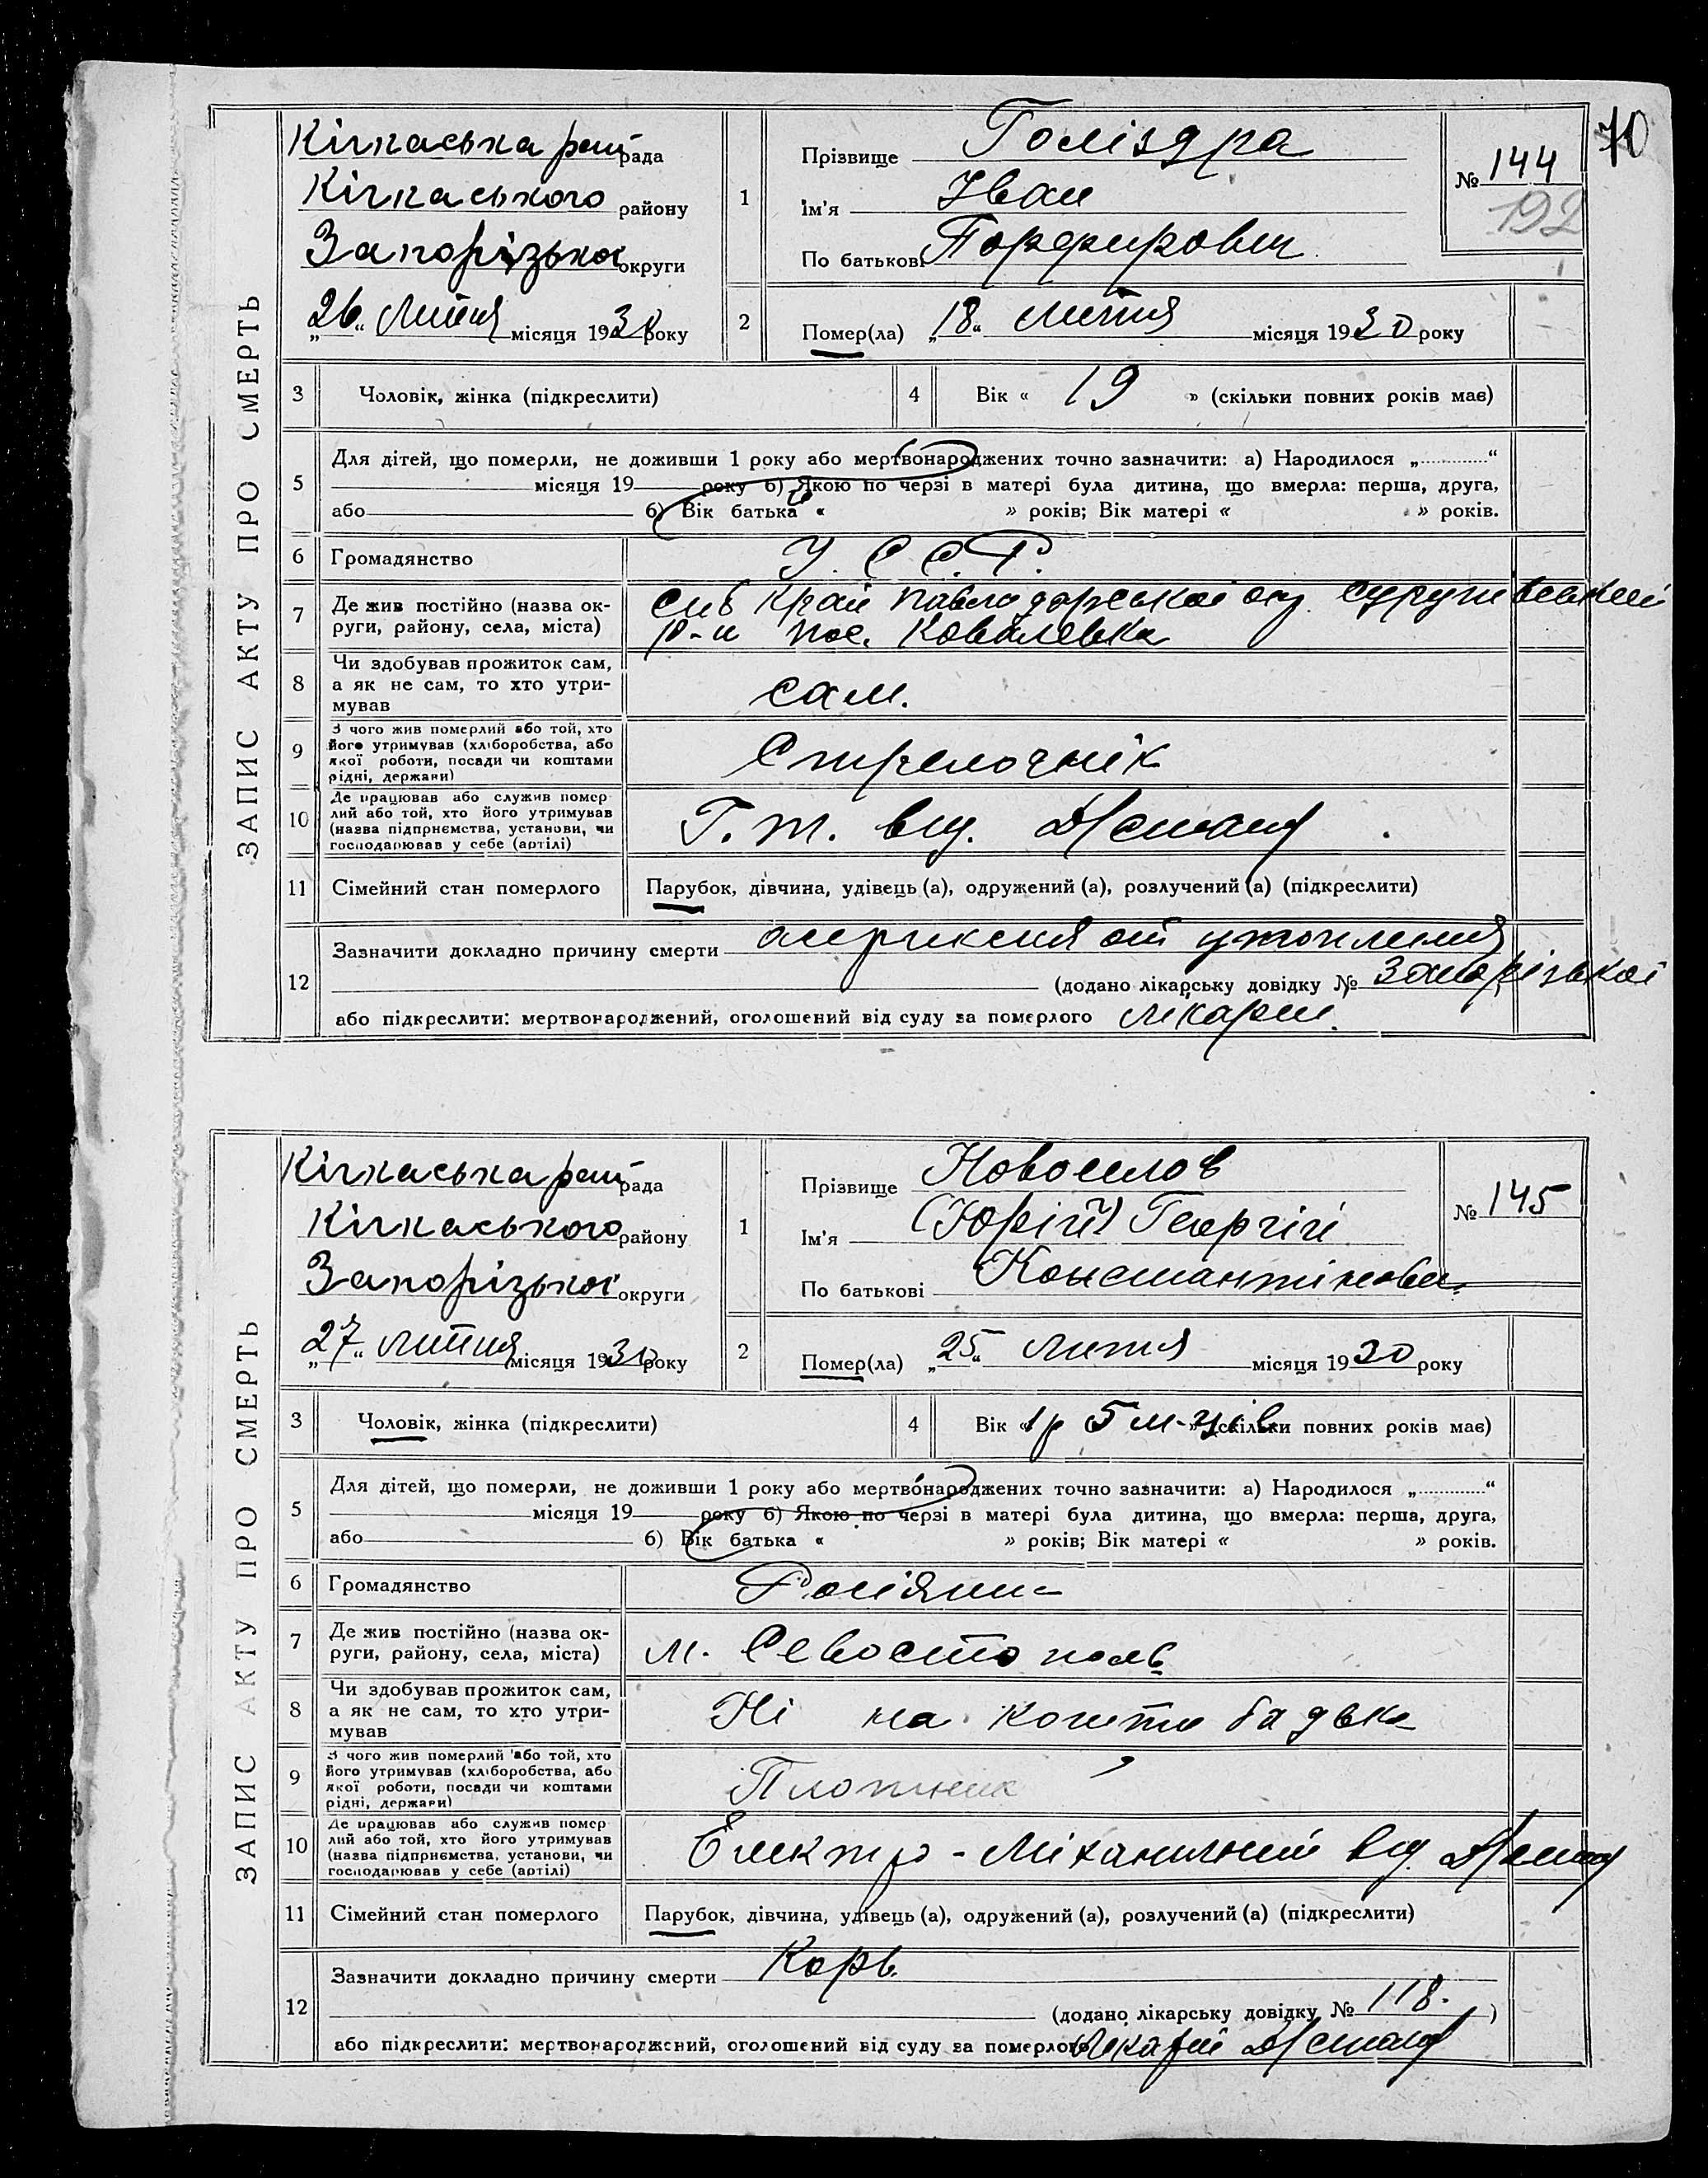 70
ЗАПИС АКТУ ПРО СМЕРТЬ
Кічкаська рай рада
Кічкаського району
Запорізької округи
„26“ Липня місяця 1930 року
1
Прізвище Голіздра
Ім'я Іван
По батькові Порфирович
№ 144
192
2
Помер(ла) „18“ липня місяця 1930 року
3 Чоловік, жінка (підкреслити)
4 Вік « 19 » (скільки повних років має)
5 Для дітей, що померли, не доживши 1 року або мертвонароджених точно зазначити: а) Народилося „ “
місяця 19 року б) Якою по черзі в матері була дитина, що вмерла: перша, друга,
або б) Вік батька « » років; Вік матері « » років.
6 Громадянство У.С.С.Р.
7 Де жив постійно (назва ок-
руги, району, села, міста)
Сиб край Павлодарської окр.
р-н пос. Ковалевка
8 Чи здобував прожиток сам,
а як не сам, то хто утри-
мував
сам.
9 З чого жив померлий або той, хто
його утримував (хліборобства, або
якої роботи, посади чи коштами
рідні, держави)
Стрелочнік
10 Де працював або служив помер
лий або той, хто його утримував
(назва підприємства, установи, чи
господарював у себе (артілі)
Г.т. від.
11 Сімейний стан померлого Парубок, дівчина, удівець (а), одружений (а), розлучений (а) (підкреслити)
12 Зазначити докладно причину смерти асфиксия от утопления
(додано лікарську довідку № Запорізької
або підкреслити: мертвонароджений, оголошений від суду за померлого лікарні.
ЗАПИС АКТУ ПРО СМЕРТЬ
Кічкаська рай рада
Кічкаського району
Запорізької округи
„27“ липня місяця 1930 року
1
Прізвище Новосилов
Ім'я (Юрій) Георгій
По батькові Константінович
№ 145
2
Помер(ла) „25“ липня місяця 1930 року
3 Чоловік, жінка (підкреслити)
4 Вік « 1 р 5 м-ців » (скільки повних років має)
5 Для дітей, що померли, не доживши 1 року або мертвонароджених точно зазначити: а) Народилося „ “
місяця 19 року б) Якою по черзі в матері була дитина, що вмерла: перша, друга,
або б) Вік батька « » років; Вік матері « » років.
6 Громадянство Росіянин
7 Де жив постійно (назва ок-
руги, району, села, міста)
м. Севостополь
8 Чи здобував прожиток сам,
а як не сам, то хто утри-
мував
Ні на кошти бадька
9 З чого жив померлий або той, хто
його утримував (хліборобства, або
якої роботи, посади чи коштами
рідні, держави)
Плотник
10 Де працював або служив помер
лий або той, хто його утримував
(назва підприємства, установи, чи
господарював у себе (артілі)
Електро-Міханичний від.
11 Сімейний стан померлого Парубок, дівчина, удівець (а), одружений (а), розлучений (а) (підкреслити)
12 Зазначити докладно причину смерти Корь.
(додано лікарську довідку № 118. )
або підкреслити: мертвонароджений, оголошений від суду за померлого Лікарні